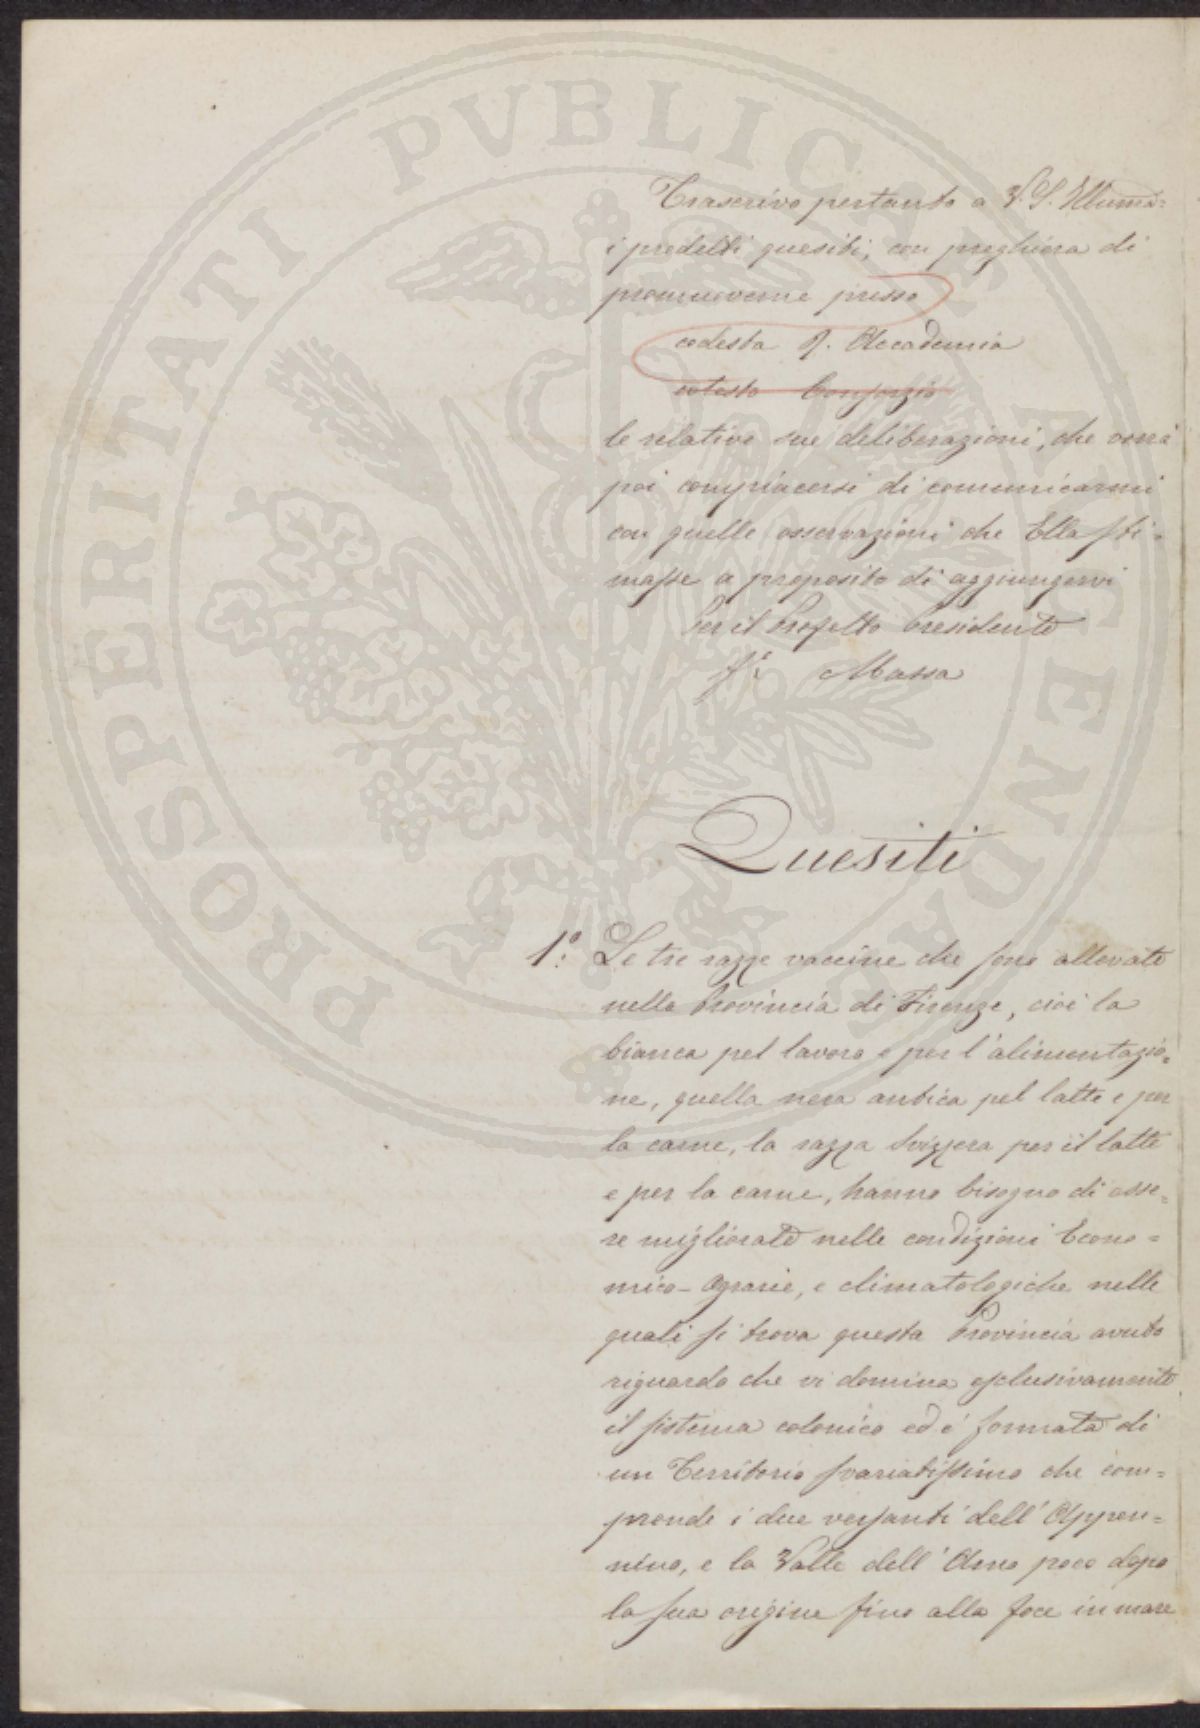 Trascrivo pertanto a V. S. Illuma:
i predetti quesiti, con preghiera di
promuoverne presso
codesta R. Accademia
cotesto Consorzio
le relative sue deliberazioni, che vorrà
poi compiacersi di comunicarmi
con quelle osservazioni che Ella sti=
masse a proposito di aggiungervi
Per il Prefetto Presidente
fo: Massa
Quesiti
1o: Le tre razze vaccine che sono allevate
nella Provincia di Firenze, cioè la
bianca pel lavoro e per l'alimentazio=
ne, quella nera antica pel latte e per
la carne, la razza Svizzera per il latte
e per la carne, hanno bisogno di esse=
re migliorate nelle condizioni Econo=
mico-Agrarie, e climatologiche nelle
quali si trova questa Provincia avuto
riguardo che vi domina esclusivamente
il sistema colonico ed è formata di
un Territorio svariatissimo che com=
prende i due versanti dell'Appen=
nino, e la Valle dell'Arno poco dopo
la sua origine fino alla foce in mare
PROSPERITATI PVBLICAE AVGENDAE